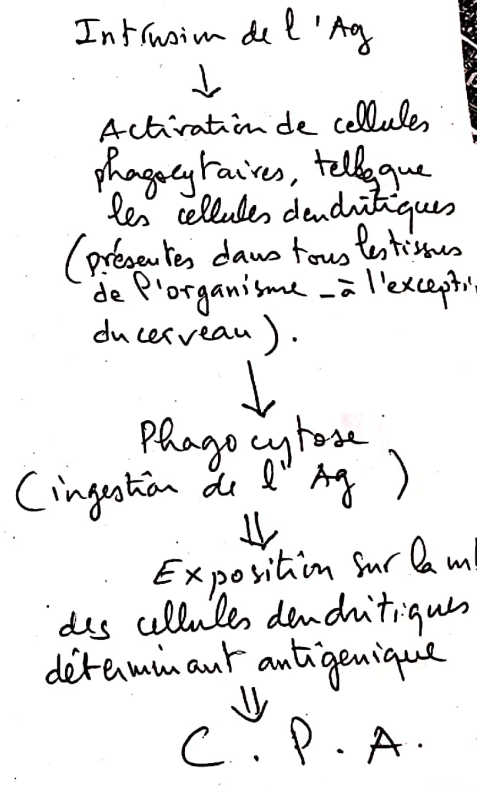 Intrusion de l'Ag
↓
Activation de cellules
phagocytaires, telles que
les cellules dendritiques
(présentes dans tous les tissus
de l'organisme - à l'excepti
du cerveau).
↓
Phagocytose
(ingestion de l'Ag)
⇓
Exposition sur la m
des cellules dendritiques
déterminant antigenique
⇓
C.P.A.